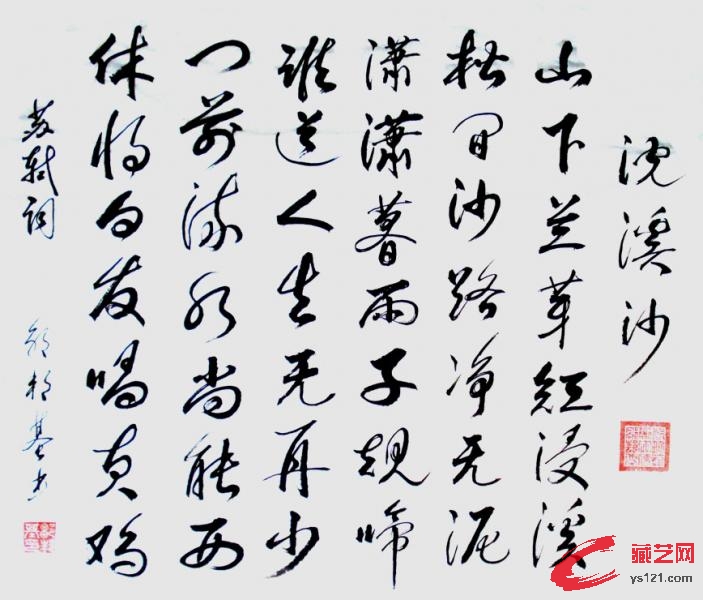 浣溪沙
山下兰芽短浸溪
松间沙路净无泥
潇潇暮雨子规啼
谁道人生无再少
门前流水尚能西
休将白发唱黄鸡
苏轼词
基书
藏艺网
ys121.com